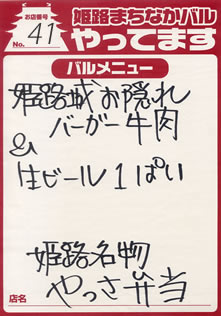 お店番号
No. 41
姫路まちなかバル
やってます
バルメニュー
姫路城お隠れ
バーガー牛肉
&
生ビール1ぱい
姫路名物
やっさ弁当
店名